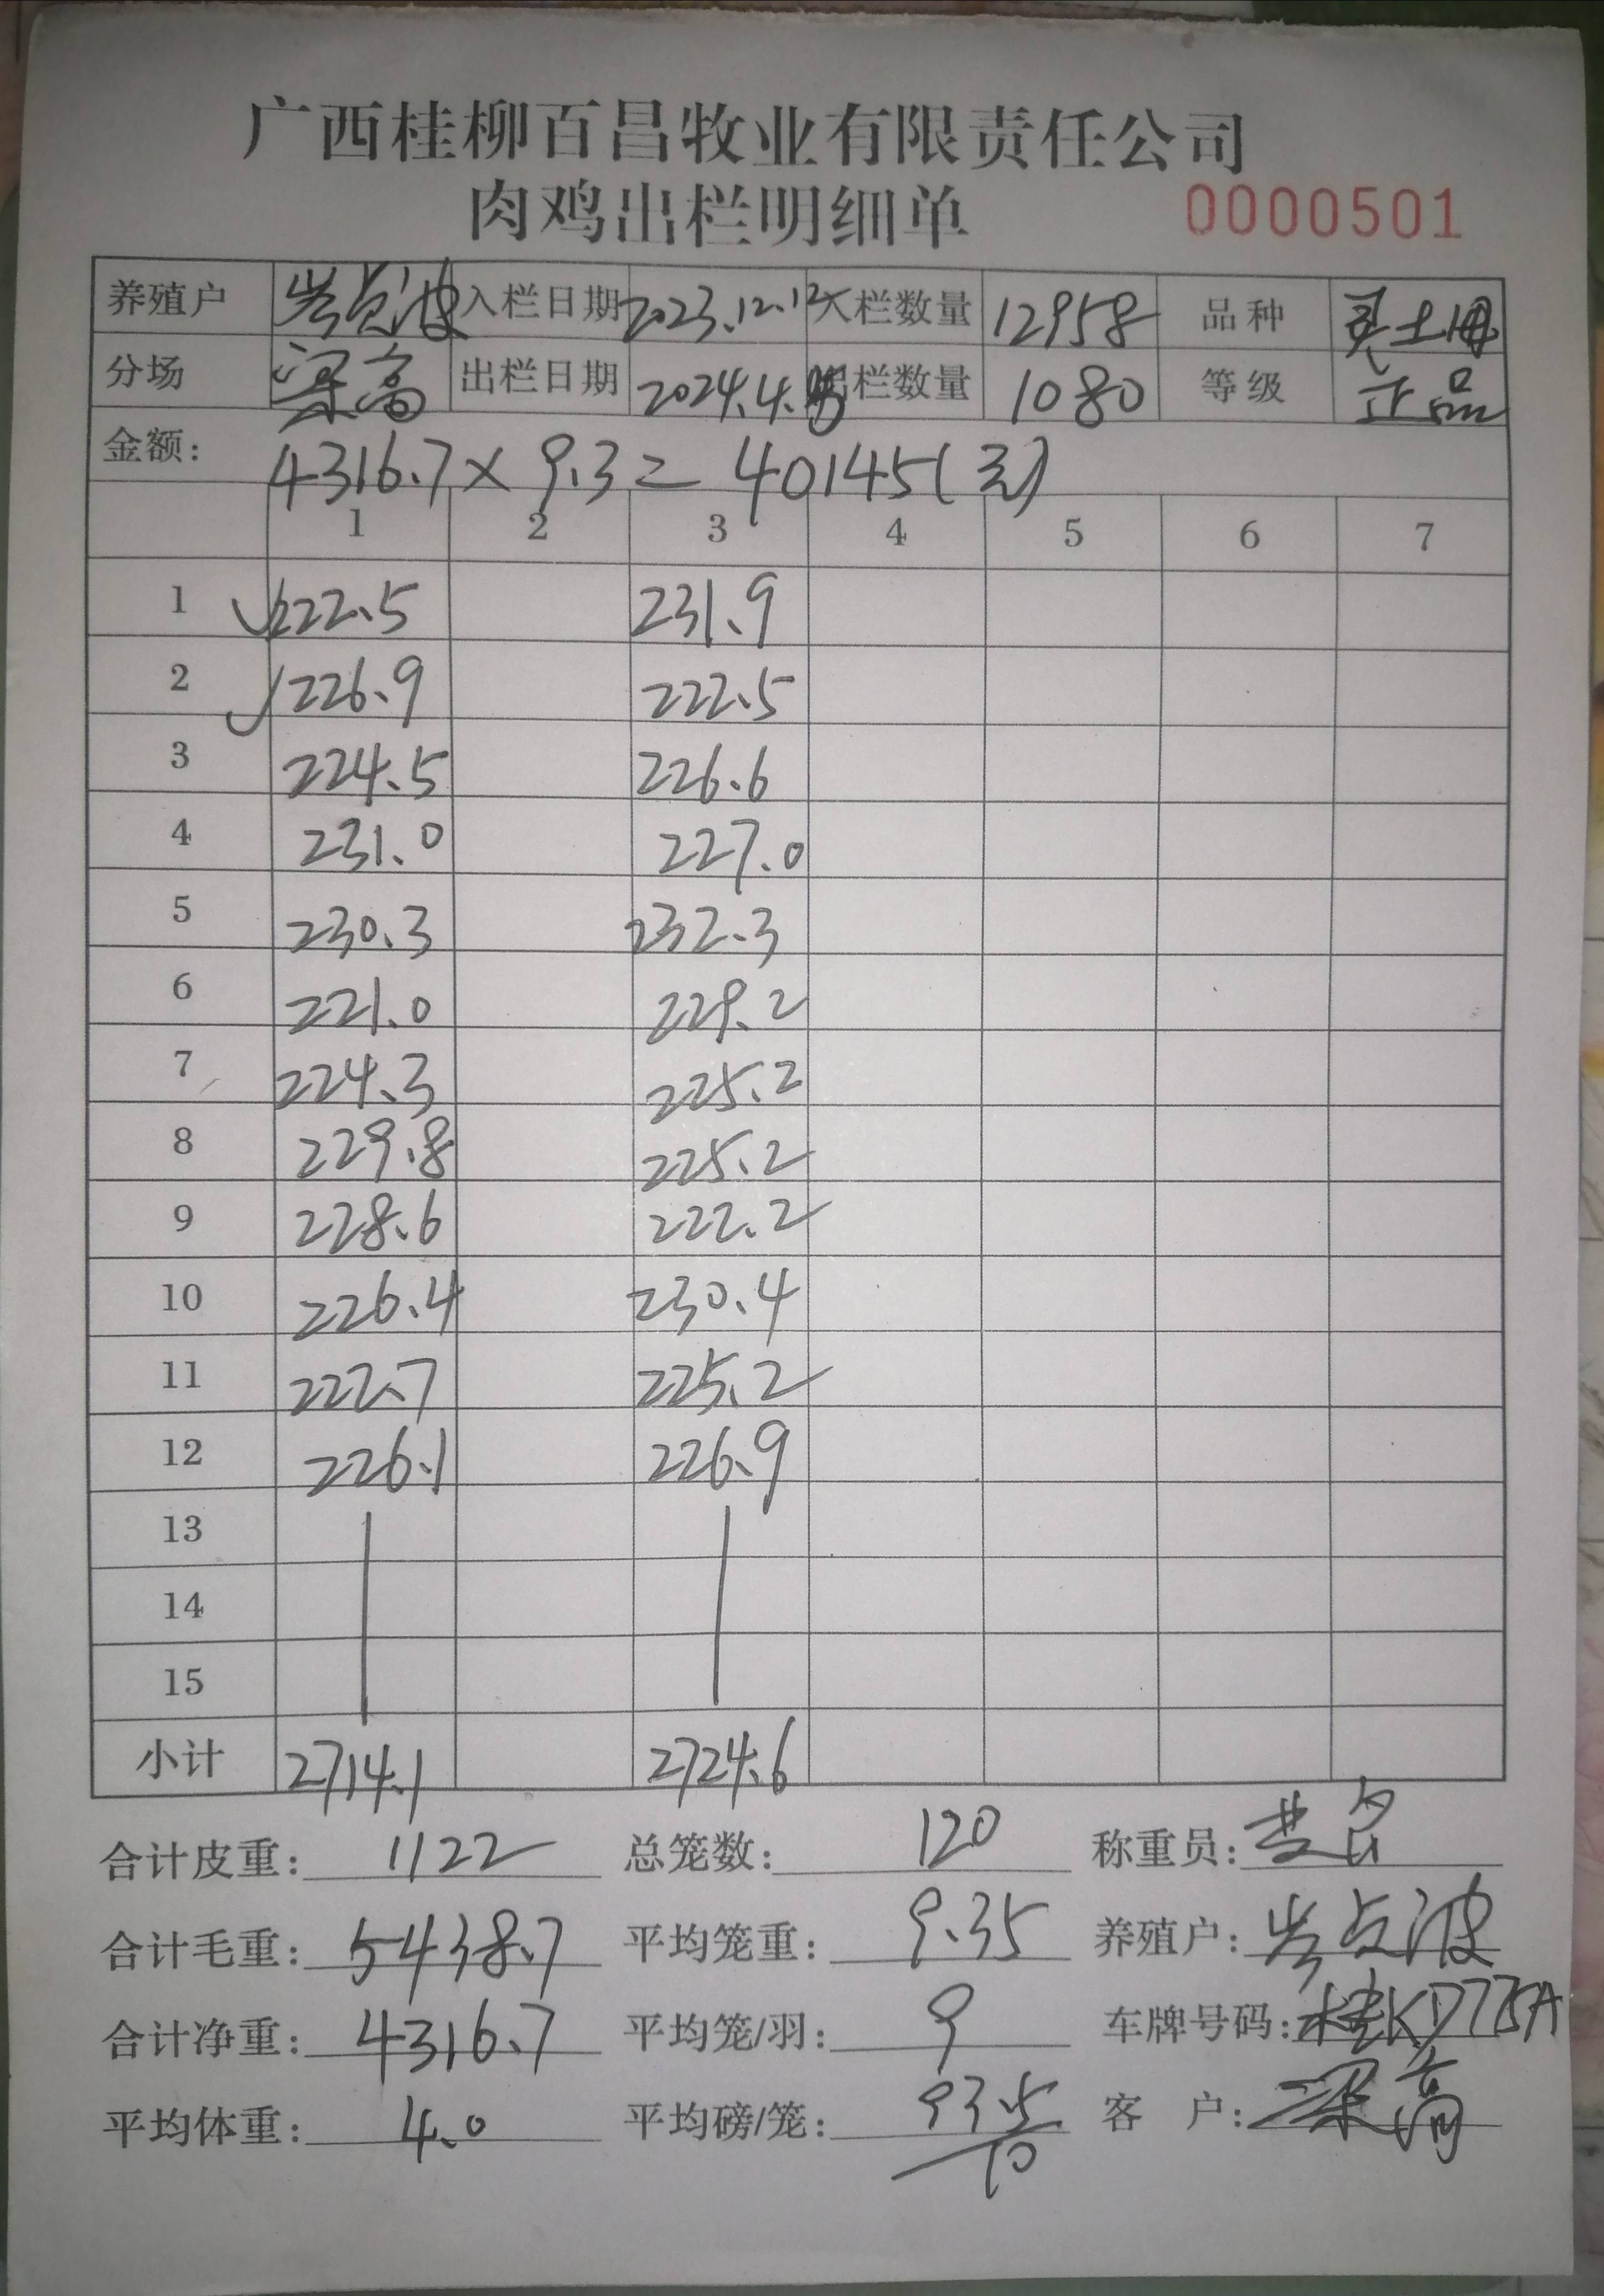 广西桂柳百昌牧业有限责任公司
肉鸡出栏明细单 0000501
养殖户 入栏日期 2023.12.12 入栏数量 12958 品种
分场 梁高 出栏日期 2024.4. 出栏数量 1080 等级 正品
金额: 4316.7 × 9.3 = 40145(元)
1 2 3 4 5 6 7
1 222.5 231.9
2 226.9 222.5
3 224.5 226.6
4 231.0 227.0
5 230.3 232.3
6 221.0 229.2
7 224.3 225.2
8 229.8 225.2
9 228.6 222.2
10 226.4 230.4
11 222.7 225.2
12 226.1 226.9
13
14
15
小计 2714.1 2724.6
合计皮重: 1122 总笼数: 120 称重员:
合计毛重: 5438.7 平均笼重: 9.35 养殖户:
合计净重: 4316.7 平均笼/羽: 9 车牌号码: 桂KD775A
平均体重: 4.0 平均磅/笼: 935/10 客 户: 梁高